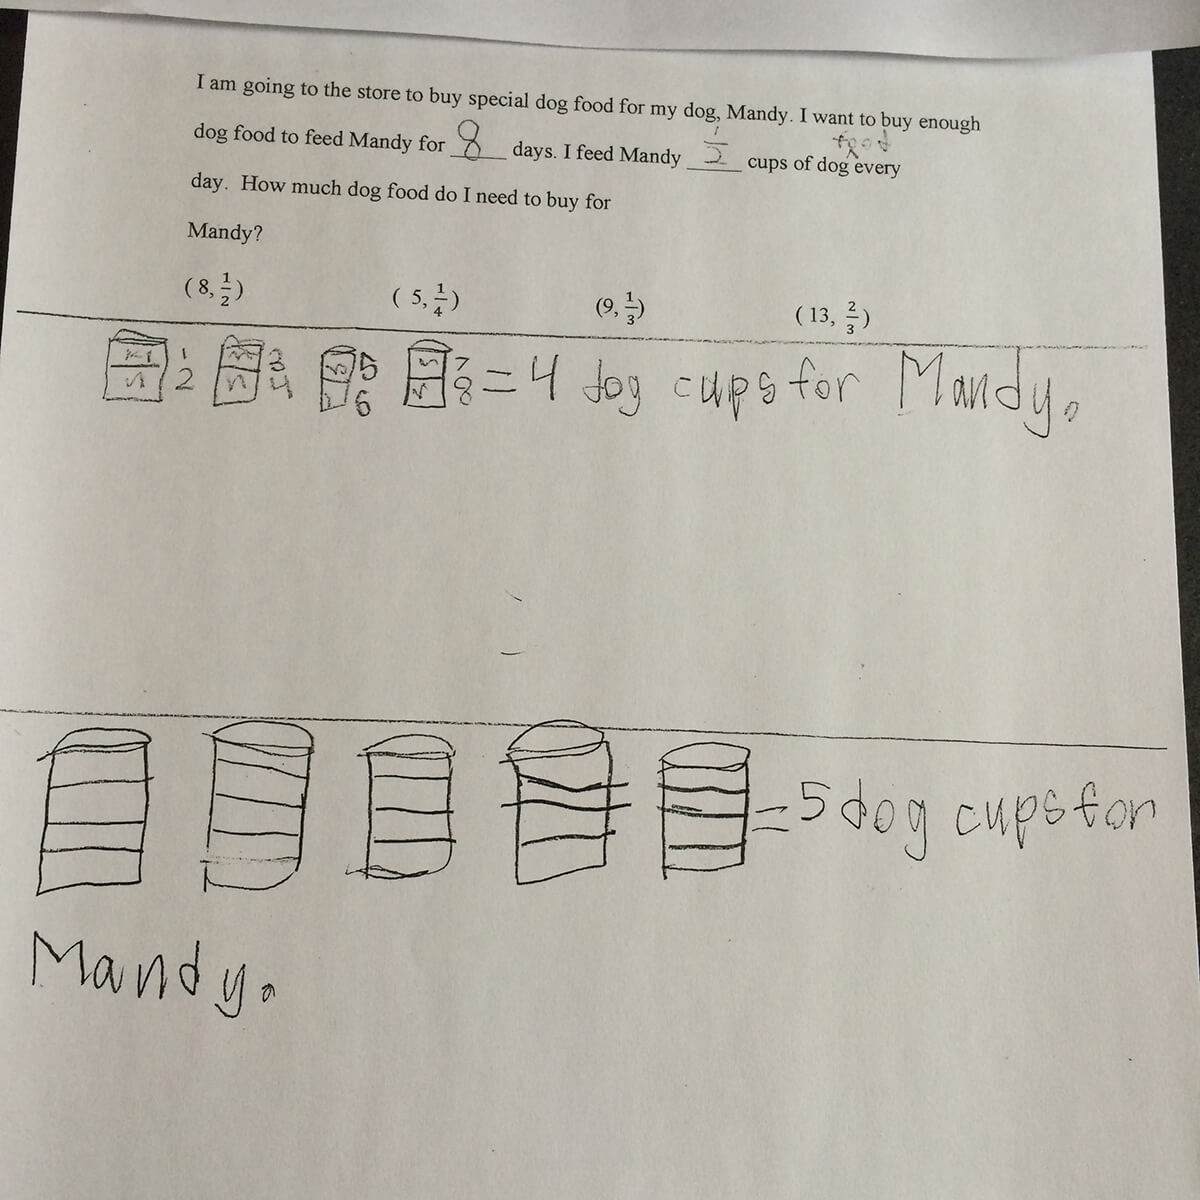 I am going to the store to buy special dog food for my dog, Mandy. I want to buy enough
food
dog food to feed Mandy for 8 days. I feed Mandy 1/2 cups of dog every
day. How much dog food do I need to buy for
Mandy?
(8, 1/2) (5, 1/4) (9, 1/3) (13, 2/3)
1 2 3 4 5 6 7 8 = 4 dog cups for Mandy.
= 5 dog cups for
Mandy.